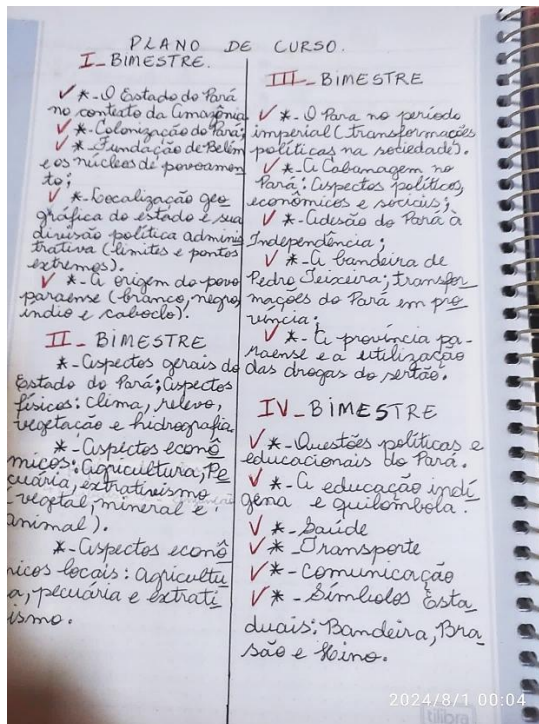 PLANO DE CURSO.
I_BIMESTRE.
✓ *-O Estado do Pará
no contexto da Amazônia
✓ *-Colonização do Pará;
✓ *-Fundação de Belém
e os núcleos de povoamen
to;
✓ *-Localização geo
gráfica do estado e sua
divisão política adminis
trativa (limites e pontos
extremos).
✓ *-A origem do povo
paraense (branco, negro,
índio e caboclo).
II_BIMESTRE
*-Aspectos gerais do
Estado do Pará; Aspectos
físicos: clima, relevo,
vegetação e hidrografia.
*-Aspectos econô
micos: agricultura, Pe
cuária, extrativismo
(vegetal, mineral e
animal).
*-Aspectos econô
micos locais: agricultu
a, pecuária e extrati
ismo.
III_BIMESTRE
✓ *-O Para no período
imperial (transformações
políticas na sociedade).
✓ *-A Cabanagem no
Pará: Aspectos políticos,
econômicos e sociais;
✓ *-Adesão do Pará à
Independência;
✓ *-A bandeira de
Pedro Teixeira; transfor
mações do Pará em pro
víncia;
✓ *-A província pa-
raense e a utilização
das drogas do sertão.
IV_BIMESTRE
✓ *-Questões políticas e
educacionais do Pará.
✓ *-A educação indí
gena e quilombola.
✓ *-Saúde
✓ *-Transporte
✓ *-comunicação
✓ *-Símbolos Esta
duais: Bandeira, Bra
são e Hino.
2024/8/1 00:04
tilibra